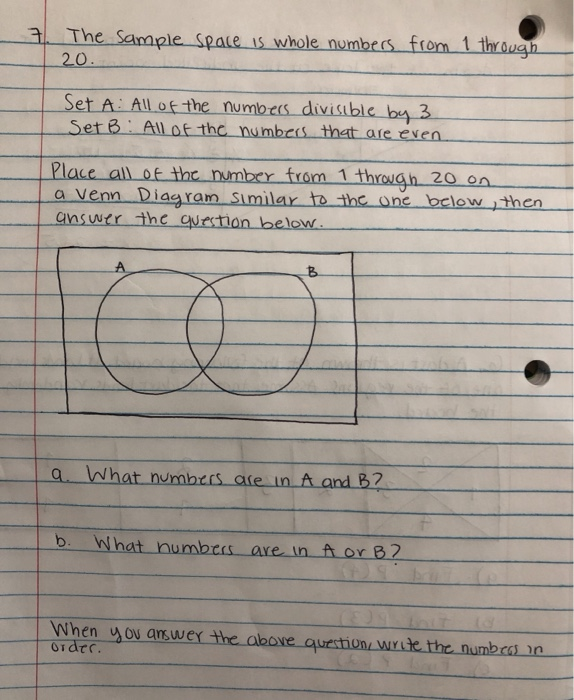 7. The Sample space is whole numbers from 1 through
20.
Set A: All of the numbers divisible by 3
Set B: All of the numbers that are even
Place all of the number from 1 through 20 on
a Venn Diagram similar to the one below, then
answer the question below.
A B
a. What numbers are in A and B?
b. What numbers are in A or B?
When you answer the above question, write the numbers in
order.